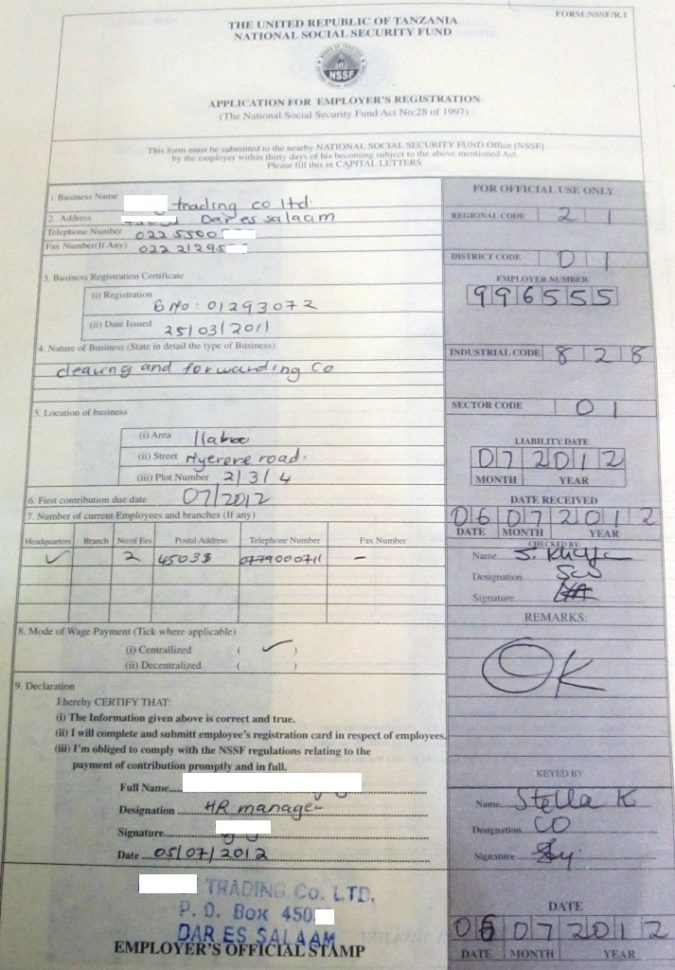 FORM:NSSF/R.1
THE UNITED REPUBLIC OF TANZANIA
NATIONAL SOCIAL SECURITY FUND
NSSF
APPLICATION FOR EMPLOYER'S REGISTRATION
(The National Social Security Fund Act No:28 of 1997)
This form must be submitted to the nearby NATIONAL SOCIAL SECURITY FUND Office [NSSF]
by the employer within thirty days of his becoming subject to the above mentioned Act.
Please fill this in CAPITAL LETTERS
1. Business Name trading co ltd.
2. Address Dar es salaam
Telephone Number 022 5500
Fax Number(If Any) 022 21295
3. Business Registration Certificate
(i) Registration
B No: 01293072
(ii) Date Issued 25/03/2011
4. Nature of Business (State in detail the type of Business)
clearing and forwarding Co
5. Location of business
(i) Area
(ii) Street Nyerere road.
(iii) Plot Number 2/3/4
6. First contribution due date 07/2012
7. Number of current Employees and branches (If any)
Headquarters Branch No:of Ees Postal Address Telephone Number Fax Number
✓ 2 45038 0779000711 –
8. Mode of Wage Payment (Tick where applicable)
(i) Centrallized ( ✓ )
(ii) Decentralized ( )
9. Declaration
I hereby CERTIFY THAT:
(i) The Information given above is correct and true.
(ii) I will complete and submitt employee's registration card in respect of employees.
(iii) I'm obliged to comply with the NSSF regulations relating to the
payment of contribution promptly and in full.
Full Name
Designation HR manager
Signature
Date 05/07/2012
TRADING Co. LTD.
P. O. Box 450
DAR ES SALAAM
EMPLOYER'S OFFICIAL STAMP
FOR OFFICIAL USE ONLY
REGIONAL CODE 2 1
DISTRICT CODE 0 1
EMPLOYER NUMBER
9 9 6 5 5 5
INDUSTRIAL CODE 8 2 8
SECTOR CODE 0 1
LIABILITY DATE
0 7 2 0 1 2
MONTH YEAR
DATE RECEIVED
0 6 0 7 2 0 1 2
DATE MONTH YEAR
CHECKED BY
Name S.
Designation
Signature
REMARKS:
OK
KEYED BY
Name Stella K
Designation CO
Signature
DATE
0 6 0 7 2 0 1 2
DATE MONTH YEAR